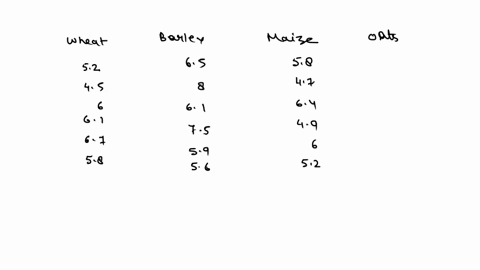 Wheat Barley Maize Oats
5.2 6.5 5.8
4.5 8 4.7
6 6.1 6.4
6.1 7.5 4.9
6.7 5.9 6
5.8 5.6 5.2